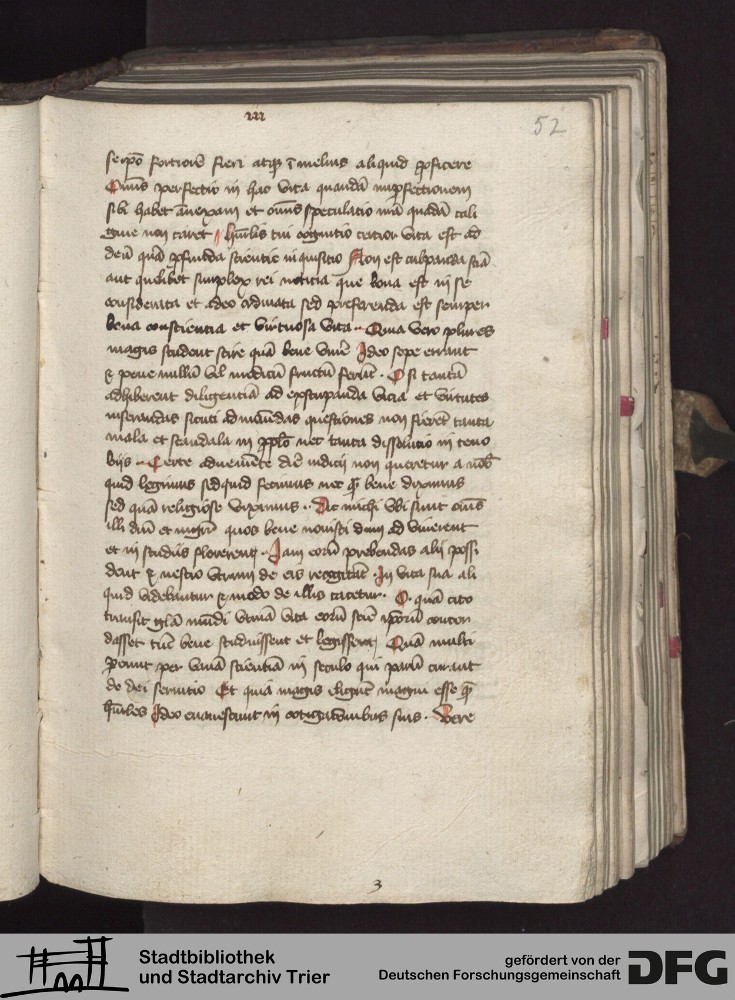 iii
52
se ip̄o fortiorē fieri atq̧ ī melius aliquid ꝓficere
Om̄is perfectio in hac vita quandā imꝑfectionem
sibi habet ānexam et om̄is speculatio n̄ra quadā cali
gine non caret hūilis tui cognitio certior vita est ad
deū quā ꝓfunda scientie inquisitio Non est culpanda sciā
aut quelibet simplex rei noticia que bona est in se
considerata et a deo ordinata sed preferenda est semper
bona conscientia et virtuosa vita Quia vero plures
magis student scire quā bene viuē Ideo sepe errant
⁊ pene nullū vl̄ modicū fructū ferūt. O si tantā
adhiberent diligentiā ad exstirpanda vicia et virtutes
inserendas sicuti ad mouēdas questiones non fierēt tanta
mala et scandala in ppl̄o nec tanta dissolucio in ceno
bijs Certe adueniēte die iudicij non queretur a nob̄
quid legimus sed quid fecimus nec q̄ bene diximus
sed quā religiose viximus. Dic michi vbi sunt om̄s
illi dn̄i et mgr̄i quos bene nouisti dum ad viuerent
et in studijs florerent Iam eorū prebendas alij possi
dent ⁊ nescio vtrum de eis recogitāt. In vita sua ali
quid videbantur ⁊ modo de illis tacetur. O. quā cito
transit gl̄a mūdi vtinā vita eorū scīe ip̄orū concor
dasset tūc bene studuissent et legissent Quā multi
ꝑeunt per vanā scientiā in seculo qui parū curant
de dei seruitio Et quia magis eligūt magni esse q̄
hūiles Ideo euanescunt in cogitacōnibus suis. Vere
3
Stadtbibliothek
und Stadtarchiv Trier
gefördert von der
Deutschen Forschungsgemeinschaft
DFG